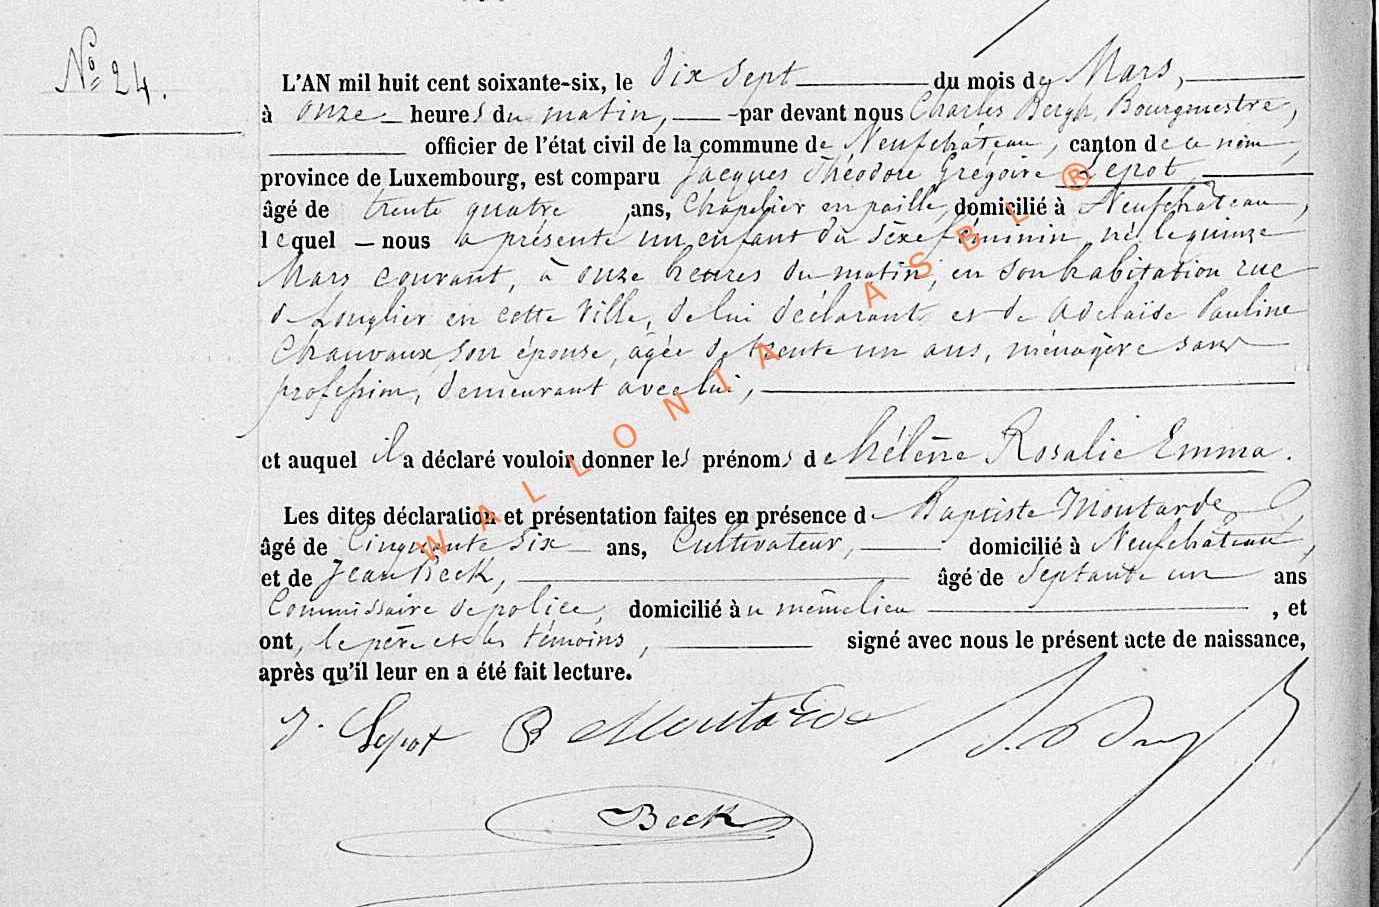 N° 24.
L'AN mil huit cent soixante-six, le dix sept du mois de Mars,
à onze heures du matin, par devant nous Charles Bergh, Bourgmestre,
officier de l'état civil de la commune de Neufchâteau, canton de ce nom,
province de Luxembourg, est comparu Jacques Théodore Grégoire Lepot,
âgé de trente quatre ans, Chapelier en paille, domicilié à Neufchâteau,
lequel nous a présenté un enfant du sèxe féminin, né le quinze
Mars courant, à onze heures du matin, en son habitation rue
de Longlier en cette Ville, de lui déclarant et de Adelaïde Pauline
Chauvaux son épouse, âgée de trente un ans, ménagère sans
profession, demeurant avec lui,
et auquel il a déclaré vouloir donner les prénoms de Hélène Rosalie Emma.
Les dites déclaration et présentation faites en présence de Baptiste Moutarde,
âgé de Cinquante six ans, Cultivateur, domicilié à Neufchâteau,
et de Jean Beck, âgé de Septante un ans
Commissaire de police, domicilié au même lieu , et
ont, le père et les témoins, signé avec nous le présent acte de naissance,
après qu'il leur en a été fait lecture.
J. Lepot B Moutarde
Beck
WALLONIA ASBL ®